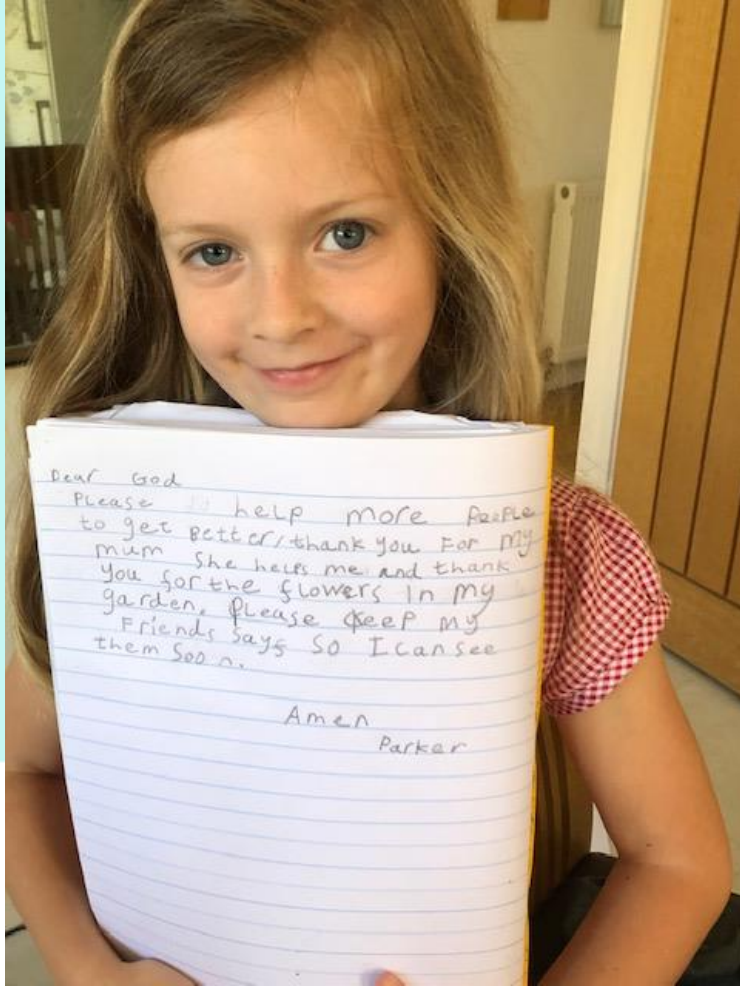 Dear God
Please help more People
to get Better, thank you For my
mum She helps me and thank
you for the flowers in my
garden. Please keep my
Friends Says so I can see
them Soon.
Amen
Parker